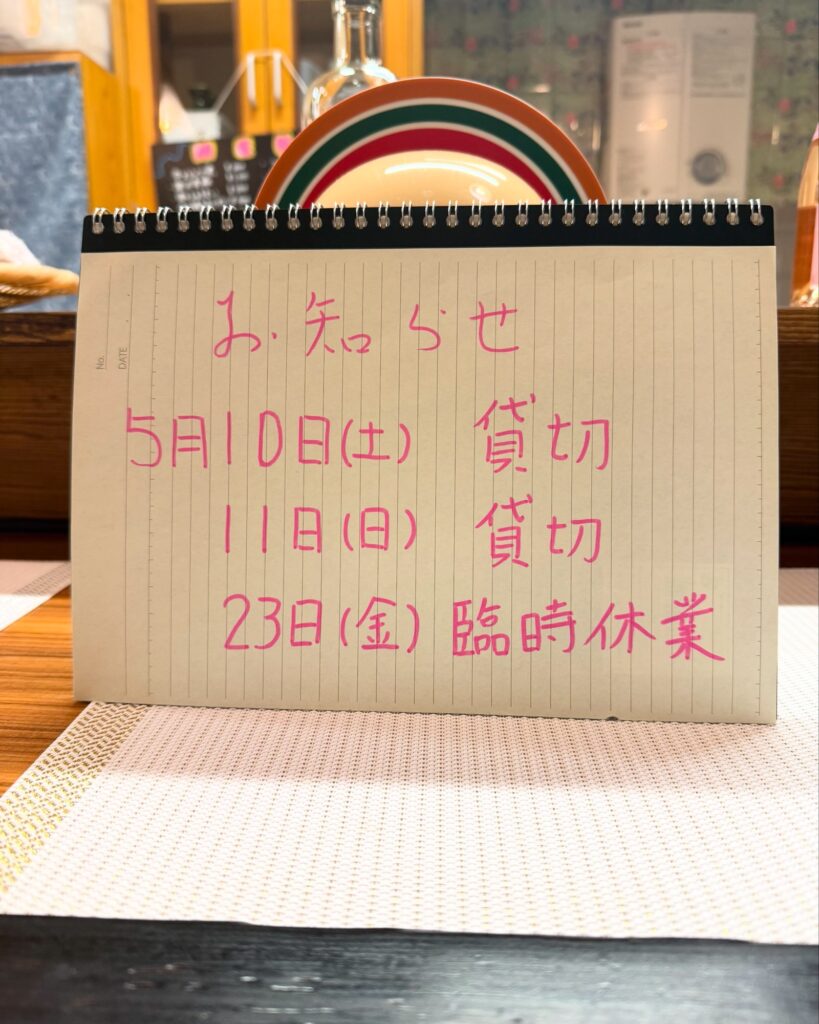 お知らせ
5月10日(土) 貸切
11日(日) 貸切
23日(金) 臨時休業
No.
DATE